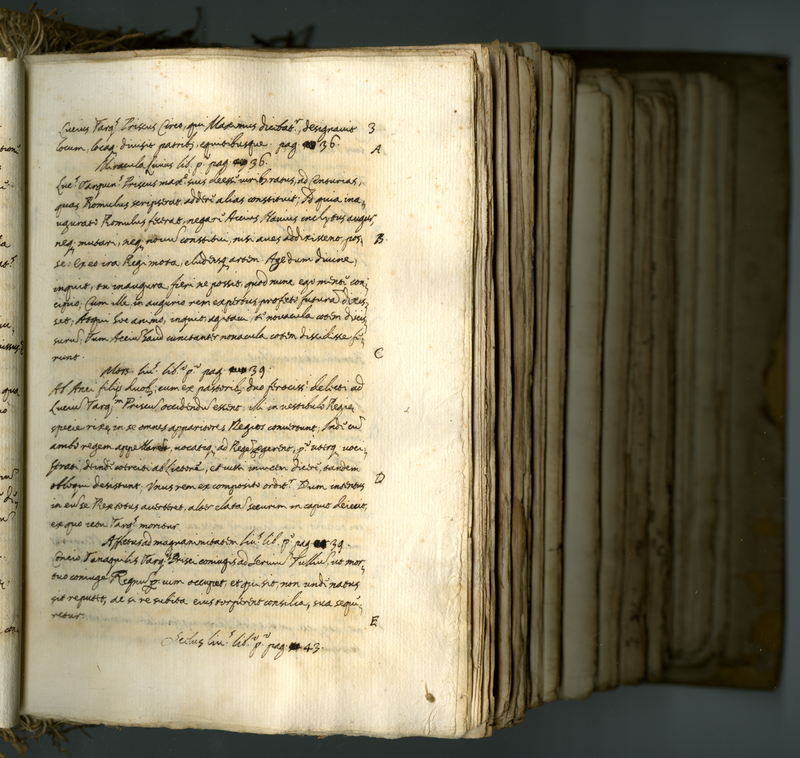 Lucius Tarq.s Priscus Circo, qui Maximus dicitat.r, designavit 3
locum, locaq. divisit patrib. equitibusque. pag 36. A
Miracula Livius lib. p.o pag 36.
Luc.s Tarquin.s Priscus maxe. suis deesse viribg ratus, ad Centurias,
quas Romulus scripserat, addere alias constituit, Id quia ina,
ugurato Romulus fecerat, negare Accius Navius inclytus augur
neq. mutari, neq. novum constitui, nisi aves addixissent, pos, B
se. Ex eo ira Regi mota, eludensq. artem. Age dum divine,
inquit, tu inaugura, fieri ne possit, quod nunc ego mente con,
cipio; Cum ille in augurio rem expertus profecto futuram dixis,
set; Atqui hoc animo, inquit, agitavi, te novacula cotem discis,
surum; Tum Accium haud cunctanter novacula cotem discidisse fe,
runt. C
Mors. liu.s lib.o p.o pag 39.
Ab Anci filijs duob. cum ex pastorib. duo ferociss.i delecti ad
Lucium Tarq.m Priscum occidendum essent, illi in vestibulo Regie,
specie rixe, in se omnes apparitores Regios convertunt, Inde cum
ambo regem appellarent, vocatiq. ad Regem pergerent, p.o uterq. voci,
ferari, deinde coerciti ab lictore, et iussi invicem dicere, tandem
obloqui desistunt. Unus rem ex composito orditr. Dum intentus D
in eum se Rex totus averteret, alter elatam securim in caput deiecit,
ex quo ictu Tarq.s moritur
Affectus ad magnanimitatem liu.s lib. p.o pag 39.
Concio Tanaquilis Tarq. Prisci coniugis ad Servium Tullium, ut mor,
tuo coniuge Regnum occupet, et qui sit, non unde natus
sit reputet, ac si re subita eius torperent consilia, sua seque,
retur E
Scelus liu.s lib.o p.o pag 43.